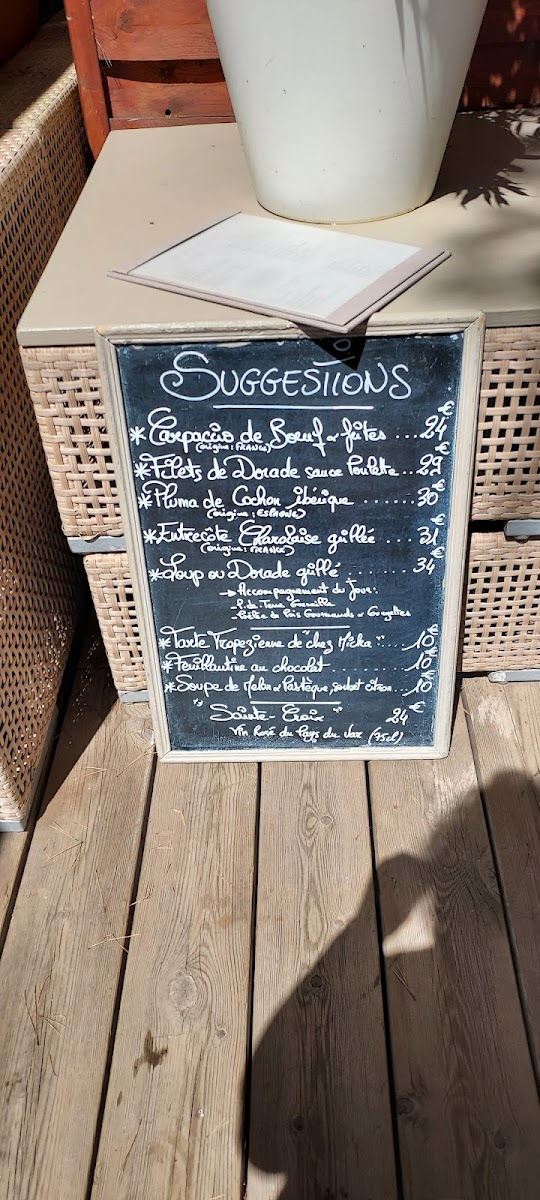 SUGGESTIONS
* Carpaccio de Boeuf et frites .... 24€
(origine : FRANCE)
* Filets de Dorade sauce Poulette ... 29€
* Pluma de Cochon ibérique ...... 30€
(origine : ESPAGNE)
* Entrecôte Charolaise grillée .... 31€
(origine : FRANCE)
* Loup ou Dorade grillé ....... 34€
→ Accompagnement du Jour :
- P. de Terre Grenaille
- Poêlée de Pois Gourmands et Courgettes
* Tarte Tropezienne de "chez Micka" .... 10€
* Feuillantine au chocolat ........ 10€
* Soupe de Melon et Pastèque, sorbet citron ... 10€
"Sainte-Croix" 24€
Vin Rosé du Pays du Var (75cl)